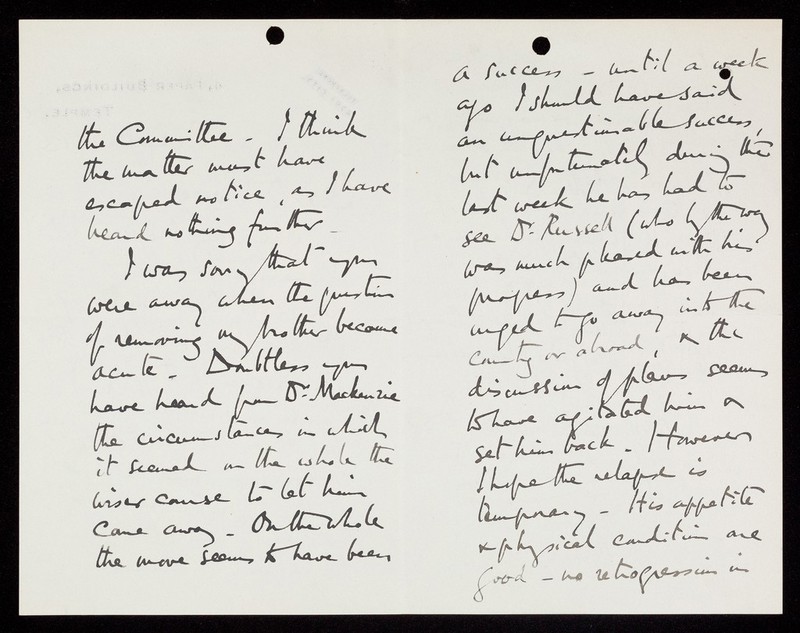 the Committee - I think
the matter must have
escaped notice, as I have
heard nothing further -
I was sorry that you
were away when the question
of removing my brother became
acute - Doubtless you
have heard from Dr. Mackenzie
the circumstances in which
it seemed on the whole the
wiser course to let him
come away - On the whole
the move seems to have been
a success - until a week
ago I should have said
an unquestionable success,
but unfortunately during the
last week he has had to
see Dr. Russell (who by the way
was much pleased with his
progress) and has been
urged to go away into the
country or abroad, & the
discussion of plans seems
to have agitated him &
set him back - However
I hope the relapse is
temporary - His appetite
& physical condition are
good - no retrogression in